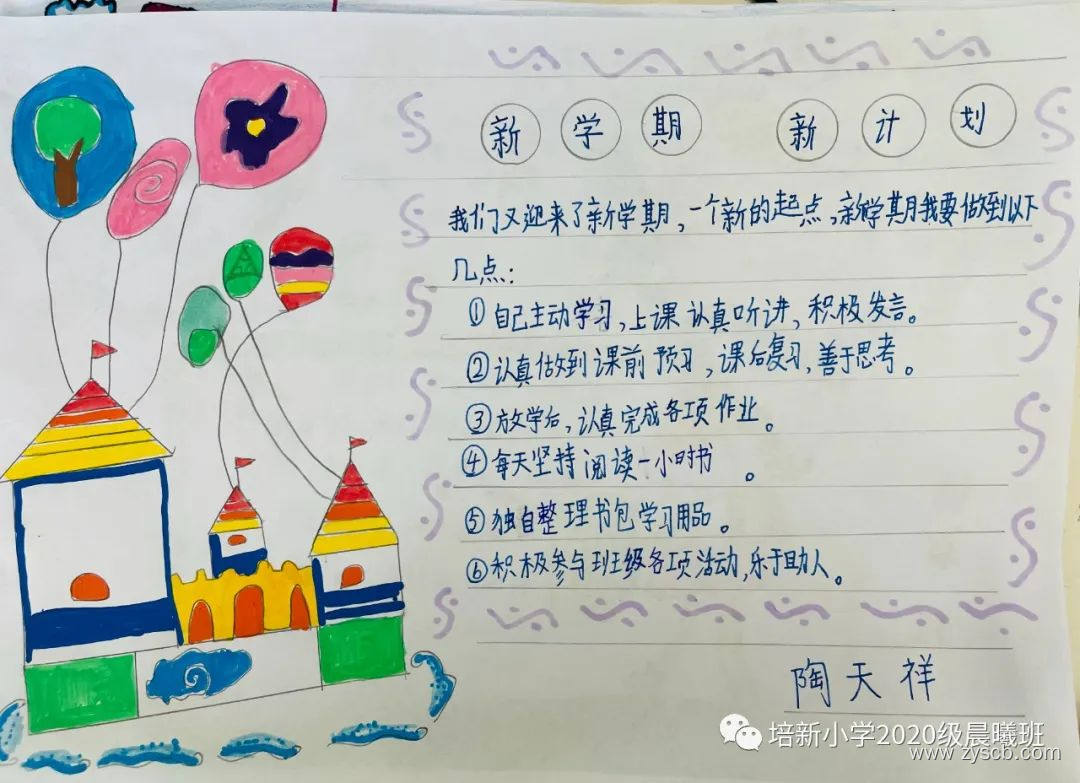 新学期 新计划
我们又迎来了新学期，一个新的起点，新学期我要做到以下
几点：
①自己主动学习，上课认真听讲、积极发言。
②认真做到课前预习，课后复习，善于思考。
③放学后，认真完成各项作业。
④每天坚持阅读一小时书。
⑤独自整理书包学习用品。
⑥积极参与班级各项活动，乐于助人。
陶天祥
培新小学2020级晨曦班
www.zyscb.com